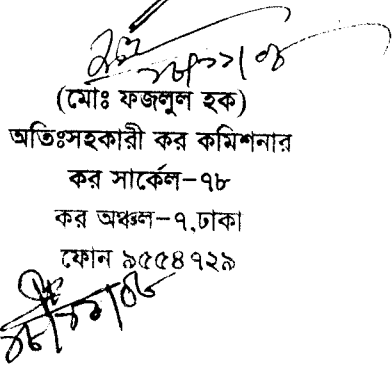 (মোঃ ফজলুল হক)
অতিঃসহকারী কর কমিশনার
কর সার্কেল-৭৮
কর অঞ্চল-৭,ঢাকা
ফোন ৯৫৫৪৭২৯